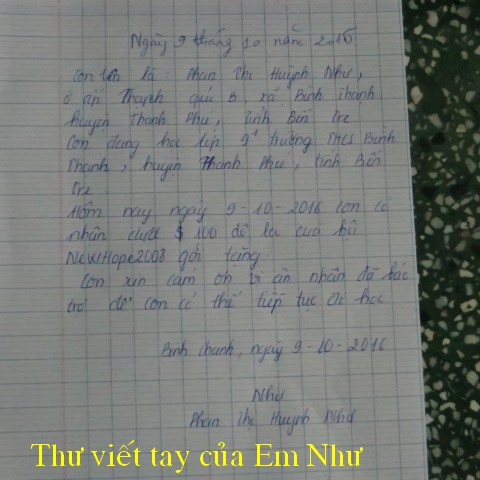 Ngày 9 tháng 10 năm 2016
Con tên là : Phan Thị Huỳnh Như,
ở ấp Thạnh quí B xã Bình thạnh
huyện Thạnh Phú, tỉnh Bến tre
Con đang học lớp 9¹ trường THCS Bình
Thạnh, huyện Thạnh Phú, tỉnh Bến
tre.
Hôm nay ngày 9-10-2016 con có
nhận được $ 100 đô la của hội
NewHope2008 gởi tặng.
Con xin cám ơn ân nhân đã
trợ để con có thể tiếp tục đi học
Bình thạnh, ngày 9-10-2016
Như
Phan thị Huỳnh Như
Thư viết tay của Em Như